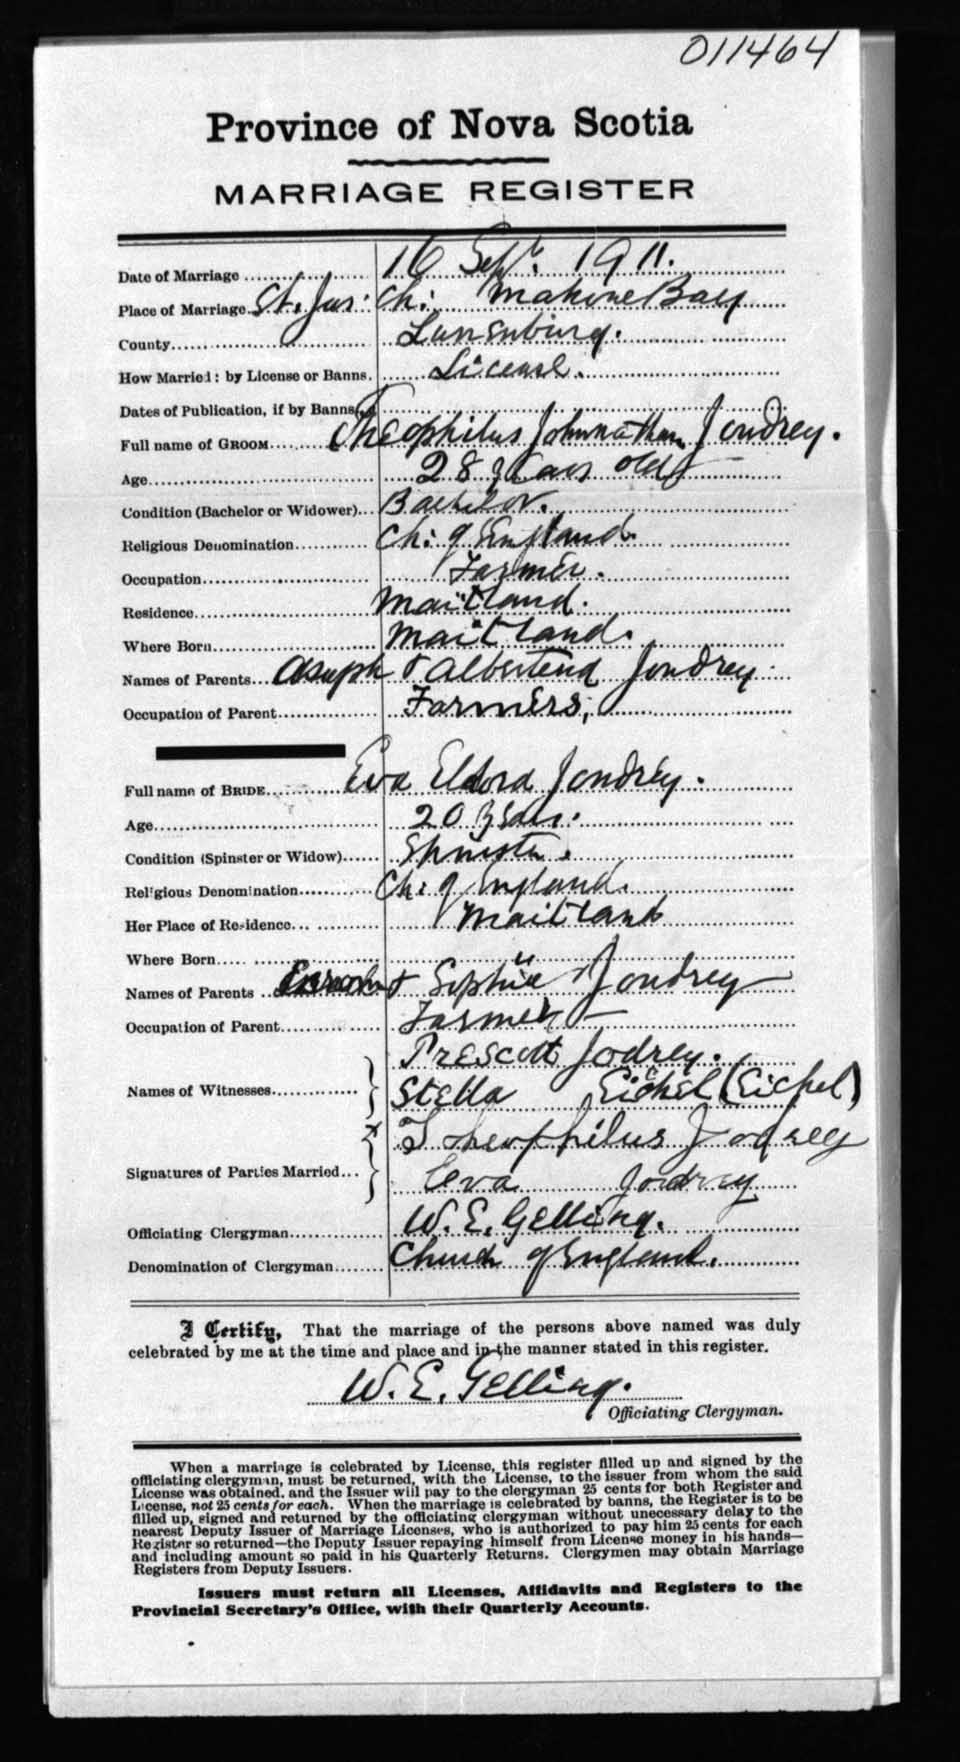 011464
Province of Nova Scotia
MARRIAGE REGISTER
Date of Marriage 16 Sept. 1911.
Place of Marriage St. Jas: Ch: Mahone Bay
County Lunenburg.
How Married: by License or Banns. License.
Dates of Publication, if by Banns
Full name of GROOM Theophilus Johnathan Jondrey.
Age 28 years old
Condition (Bachelor or Widower) Bachelor.
Religious Denomination Ch: of England.
Occupation Farmer.
Residence Maitland.
Where Born Maitland.
Names of Parents Asaph & Albertena Jondrey.
Occupation of Parent Farmers,
Full name of BRIDE Eva Eldora Jondrey.
Age 20 years.
Condition (Spinster or Widow) Spinster.
Religious Denomination Ch: of England.
Her Place of Residence Maitland
Where Born "
Names of Parents & Sophia Jondrey
Occupation of Parent Farmer
Prescott Jodrey.
Names of Witnesses Stella Eickel (Eichel)
x Theophilus Jodrey
Signatures of Parties Married Eva Jodrey
Officiating Clergyman W. E. Gelling.
Denomination of Clergyman Church of England.
I Certify, That the marriage of the persons above named was duly
celebrated by me at the time and place and in the manner stated in this register.
W. E. Gelling.
Officiating Clergyman.
When a marriage is celebrated by License, this register filled up and signed by the
officiating clergyman, must be returned, with the License, to the issuer from whom the said
License was obtained, and the Issuer will pay to the clergyman 25 cents for both Register and
License, not 25 cents for each. When the marriage is celebrated by banns, the Register is to be
filled up, signed and returned by the officiating clergyman without unnecessary delay to the
nearest Deputy Issuer of Marriage Licenses, who is authorized to pay him 25 cents for each
Register so returned—the Deputy Issuer repaying himself from License money in his hands—
and including amount so paid in his Quarterly Returns. Clergymen may obtain Marriage
Registers from Deputy Issuers.
Issuers must return all Licenses, Affidavits and Registers to the
Provincial Secretary's Office, with their Quarterly Accounts.